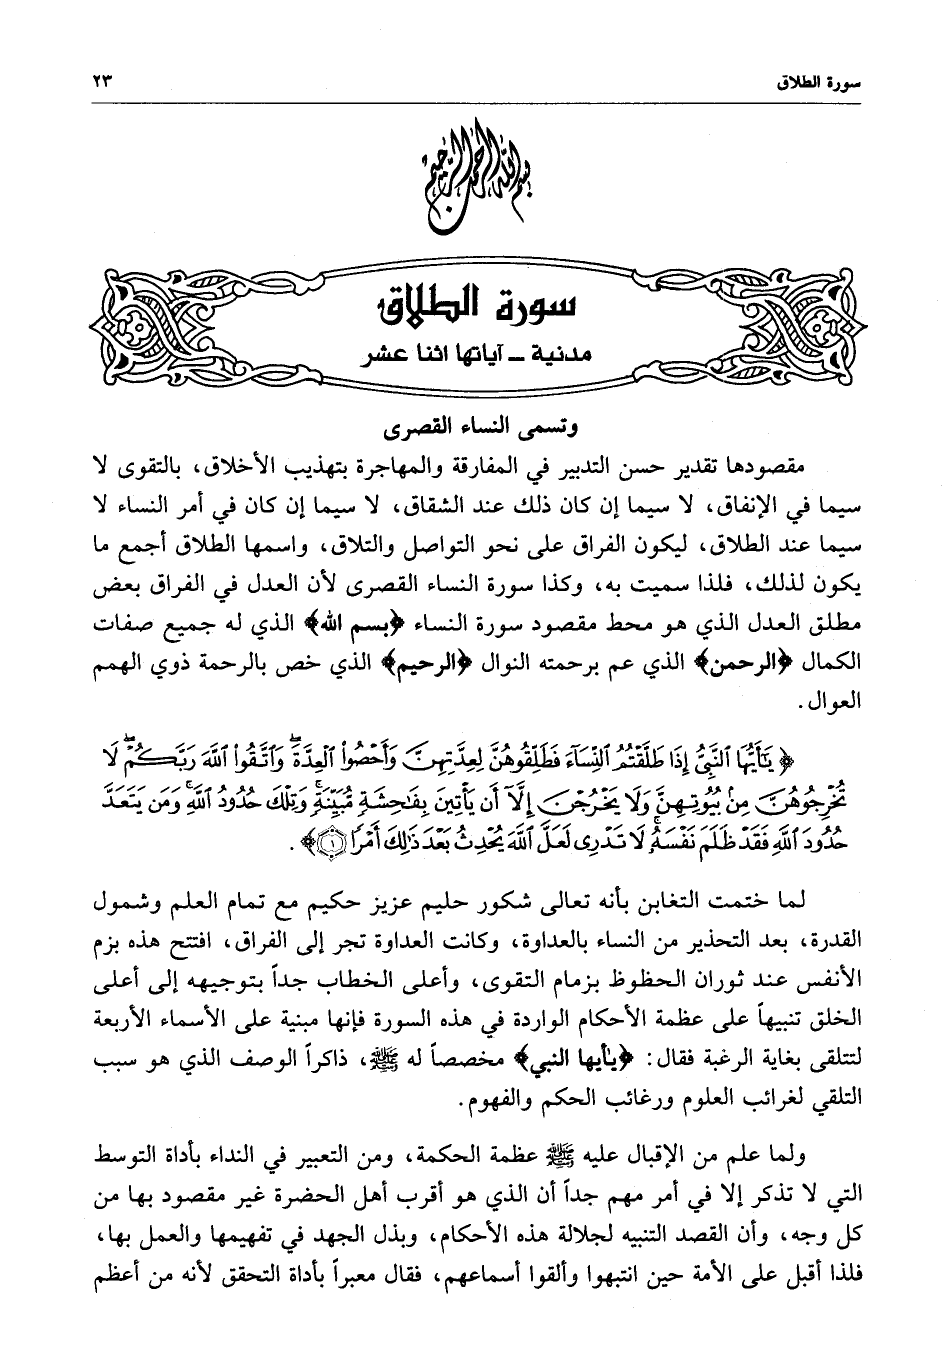 سورة الطلاق
٢٣
بسم الله الرحمن الرحيم
سورة الطلاق
مدنية ــ آياتها اثنا عشر
وتسمى النساء القصرى
مقصودها تقدير حسن التدبير في المفارقة والمهاجرة بتهذيب الأخلاق، بالتقوى لا
سيما في الإنفاق، لا سيما إن كان ذلك عند الشقاق، لا سيما إن كان في أمر النساء لا
سيما عند الطلاق، ليكون الفراق على نحو التواصل والتلاق، واسمها الطلاق أجمع ما
يكون لذلك، فلذا سميت به، وكذا سورة النساء القصرى لأن العدل في الفراق بعض
مطلق العدل الذي هو محط مقصود سورة النساء ﴿بسم الله﴾ الذي له جميع صفات
الكمال ﴿الرحمن﴾ الذي عم برحمته النوال ﴿الرحيم﴾ الذي خص بالرحمة ذوي الهمم
العوال.
﴿ يَٰٓأَيُّهَا ٱلنَّبِىُّ إِذَا طَلَّقْتُمُ ٱلنِّسَآءَ فَطَلِّقُوهُنَّ لِعِدَّتِهِنَّ وَأَحْصُوا۟ ٱلْعِدَّةَ ۖ وَٱتَّقُوا۟ ٱللَّهَ رَبَّكُمْ ۖ لَا
تُخْرِجُوهُنَّ مِنۢ بُيُوتِهِنَّ وَلَا يَخْرُجْنَ إِلَّآ أَن يَأْتِينَ بِفَٰحِشَةٍ مُّبَيِّنَةٍ ۚ وَتِلْكَ حُدُودُ ٱللَّهِ ۚ وَمَن يَتَعَدَّ
حُدُودَ ٱللَّهِ فَقَدْ ظَلَمَ نَفْسَهُۥ ۚ لَا تَدْرِى لَعَلَّ ٱللَّهَ يُحْدِثُ بَعْدَ ذَٰلِكَ أَمْرًا ١﴾.
لما ختمت التغابن بأنه تعالى شكور حليم عزيز حكيم مع تمام العلم وشمول
القدرة، بعد التحذير من النساء بالعداوة، وكانت العداوة تجر إلى الفراق، افتتح هذه بزم
الأنفس عند ثوران الحظوظ بزمام التقوى، وأعلى الخطاب جداً بتوجيهه إلى أعلى
الخلق تنبيهاً على عظمة الأحكام الواردة في هذه السورة فإنها مبنية على الأسماء الأربعة
لتتلقى بغاية الرغبة فقال: ﴿يأيها النبي﴾ مخصصاً له ﷺ، ذاكراً الوصف الذي هو سبب
التلقي لغرائب العلوم ورغائب الحكم والفهوم.
ولما علم من الإقبال عليه ﷺ عظمة الحكمة، ومن التعبير في النداء بأداة التوسط
التي لا تذكر إلا في أمر مهم جداً أن الذي هو أقرب أهل الحضرة غير مقصود بها من
كل وجه، وأن القصد التنبيه لجلالة هذه الأحكام، وبذل الجهد في تفهيمها والعمل بها،
فلذا أقبل على الأمة حين انتبهوا وألقوا أسماعهم، فقال معبراً بأداة التحقق لأنه من أعظم